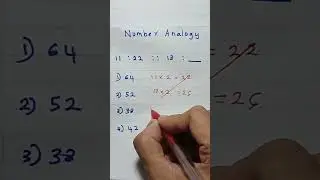 Number Analogy
11 : 22 : : 13 : __
1) 64
2) 52
3) 38
4) 42
11 × 2 = 22
13 × 2 = 26
1) 64
2) 52
3) 38